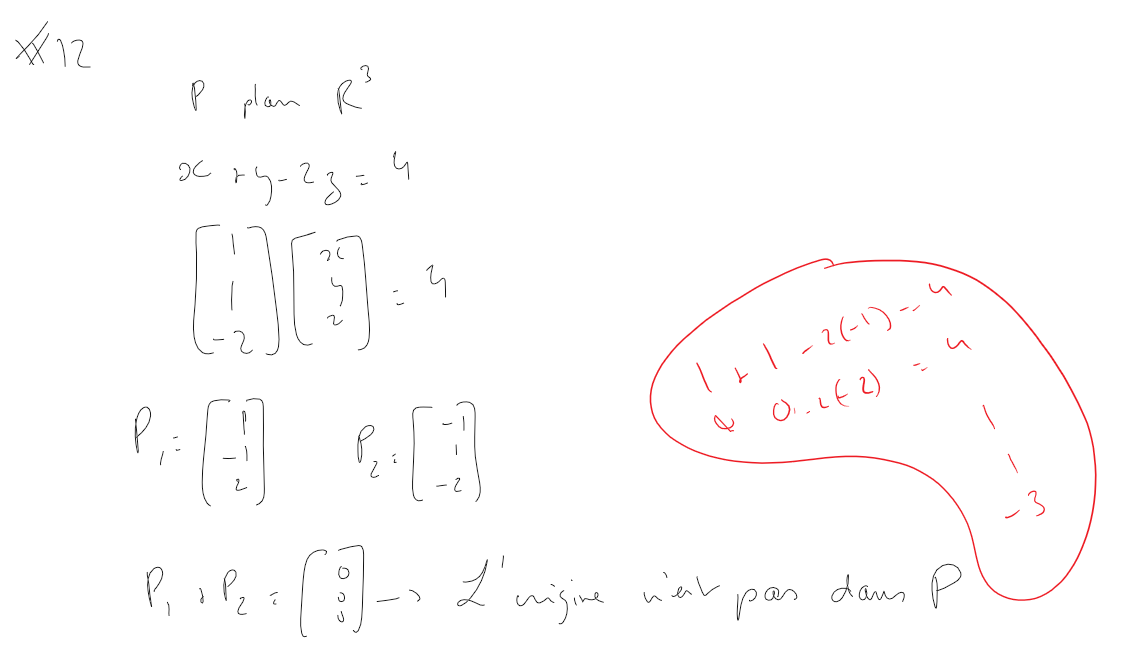 #12
P plan R³
x + y - 2z = 4
[1 1 -2] [x y z] = 4
P₁ = [1 -1 2] P₂ = [-1 1 -2]
P₁ + P₂ = [0 0 0] → L'origine n'est pas dans P
1 + 1 - 2(-1) = 4
0 - 2(-2) = 4
1
1
-3